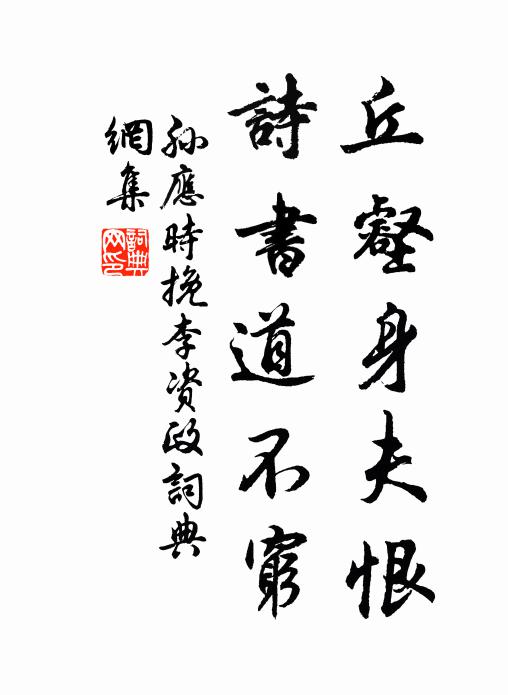 丘壑身夫恨
詩書道不窮
孫應時挽李資政詞典
網集
詞典網印